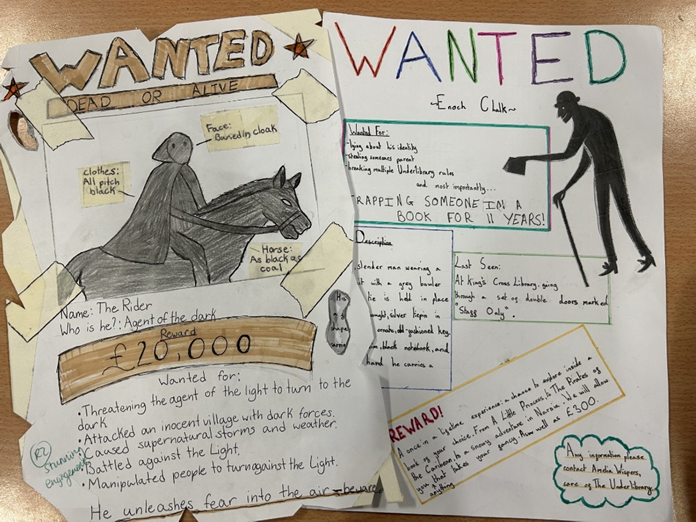 WANTED
DEAD OR ALIVE
Face:
Buried in cloak
clothes:
All pitch
black
Horse:
As black as
coal
Name: The Rider
Who is he?: Agent of the dark
Reward
£20,000
Wanted for:
• Threatening the agent of the light to turn to the
dark
• Attacked an inocent village with dark forces.
• Caused supernatural storms and weather.
• Battled against the Light.
• Manipulated people to turn against the Light.
He unleashes fear into the air - beware
R2
Stunning
engagement
WANTED
~Enoch Chalk~
Wanted For:
lying about his identity
stealing someones parent
breaking multiple Underlibrary rules
and most importantly...
RAPPING SOMEONE IN A
BOOK FOR 11 YEARS!
Description
slender man wearing a
with a grey bowler
he is held in place
silver tiepin is
ornate, old-fashioned key,
black notebook, and
hand he carries a
Last Seen:
At King's Cross Library, going
through a set of double doors marked
"Stagg Only".
His
shape
REWARD!
A once in a lifetime experience: a chance to explore inside a
book of your choice. From A Little Princess, to The Pirates of
the Caribbean to a snowy adventure in Narnia. We will allow
you that takes your fancy. Aswell as £300.
anything
Any information please
contact Amelia Wispers,
care of The Underlibrary.